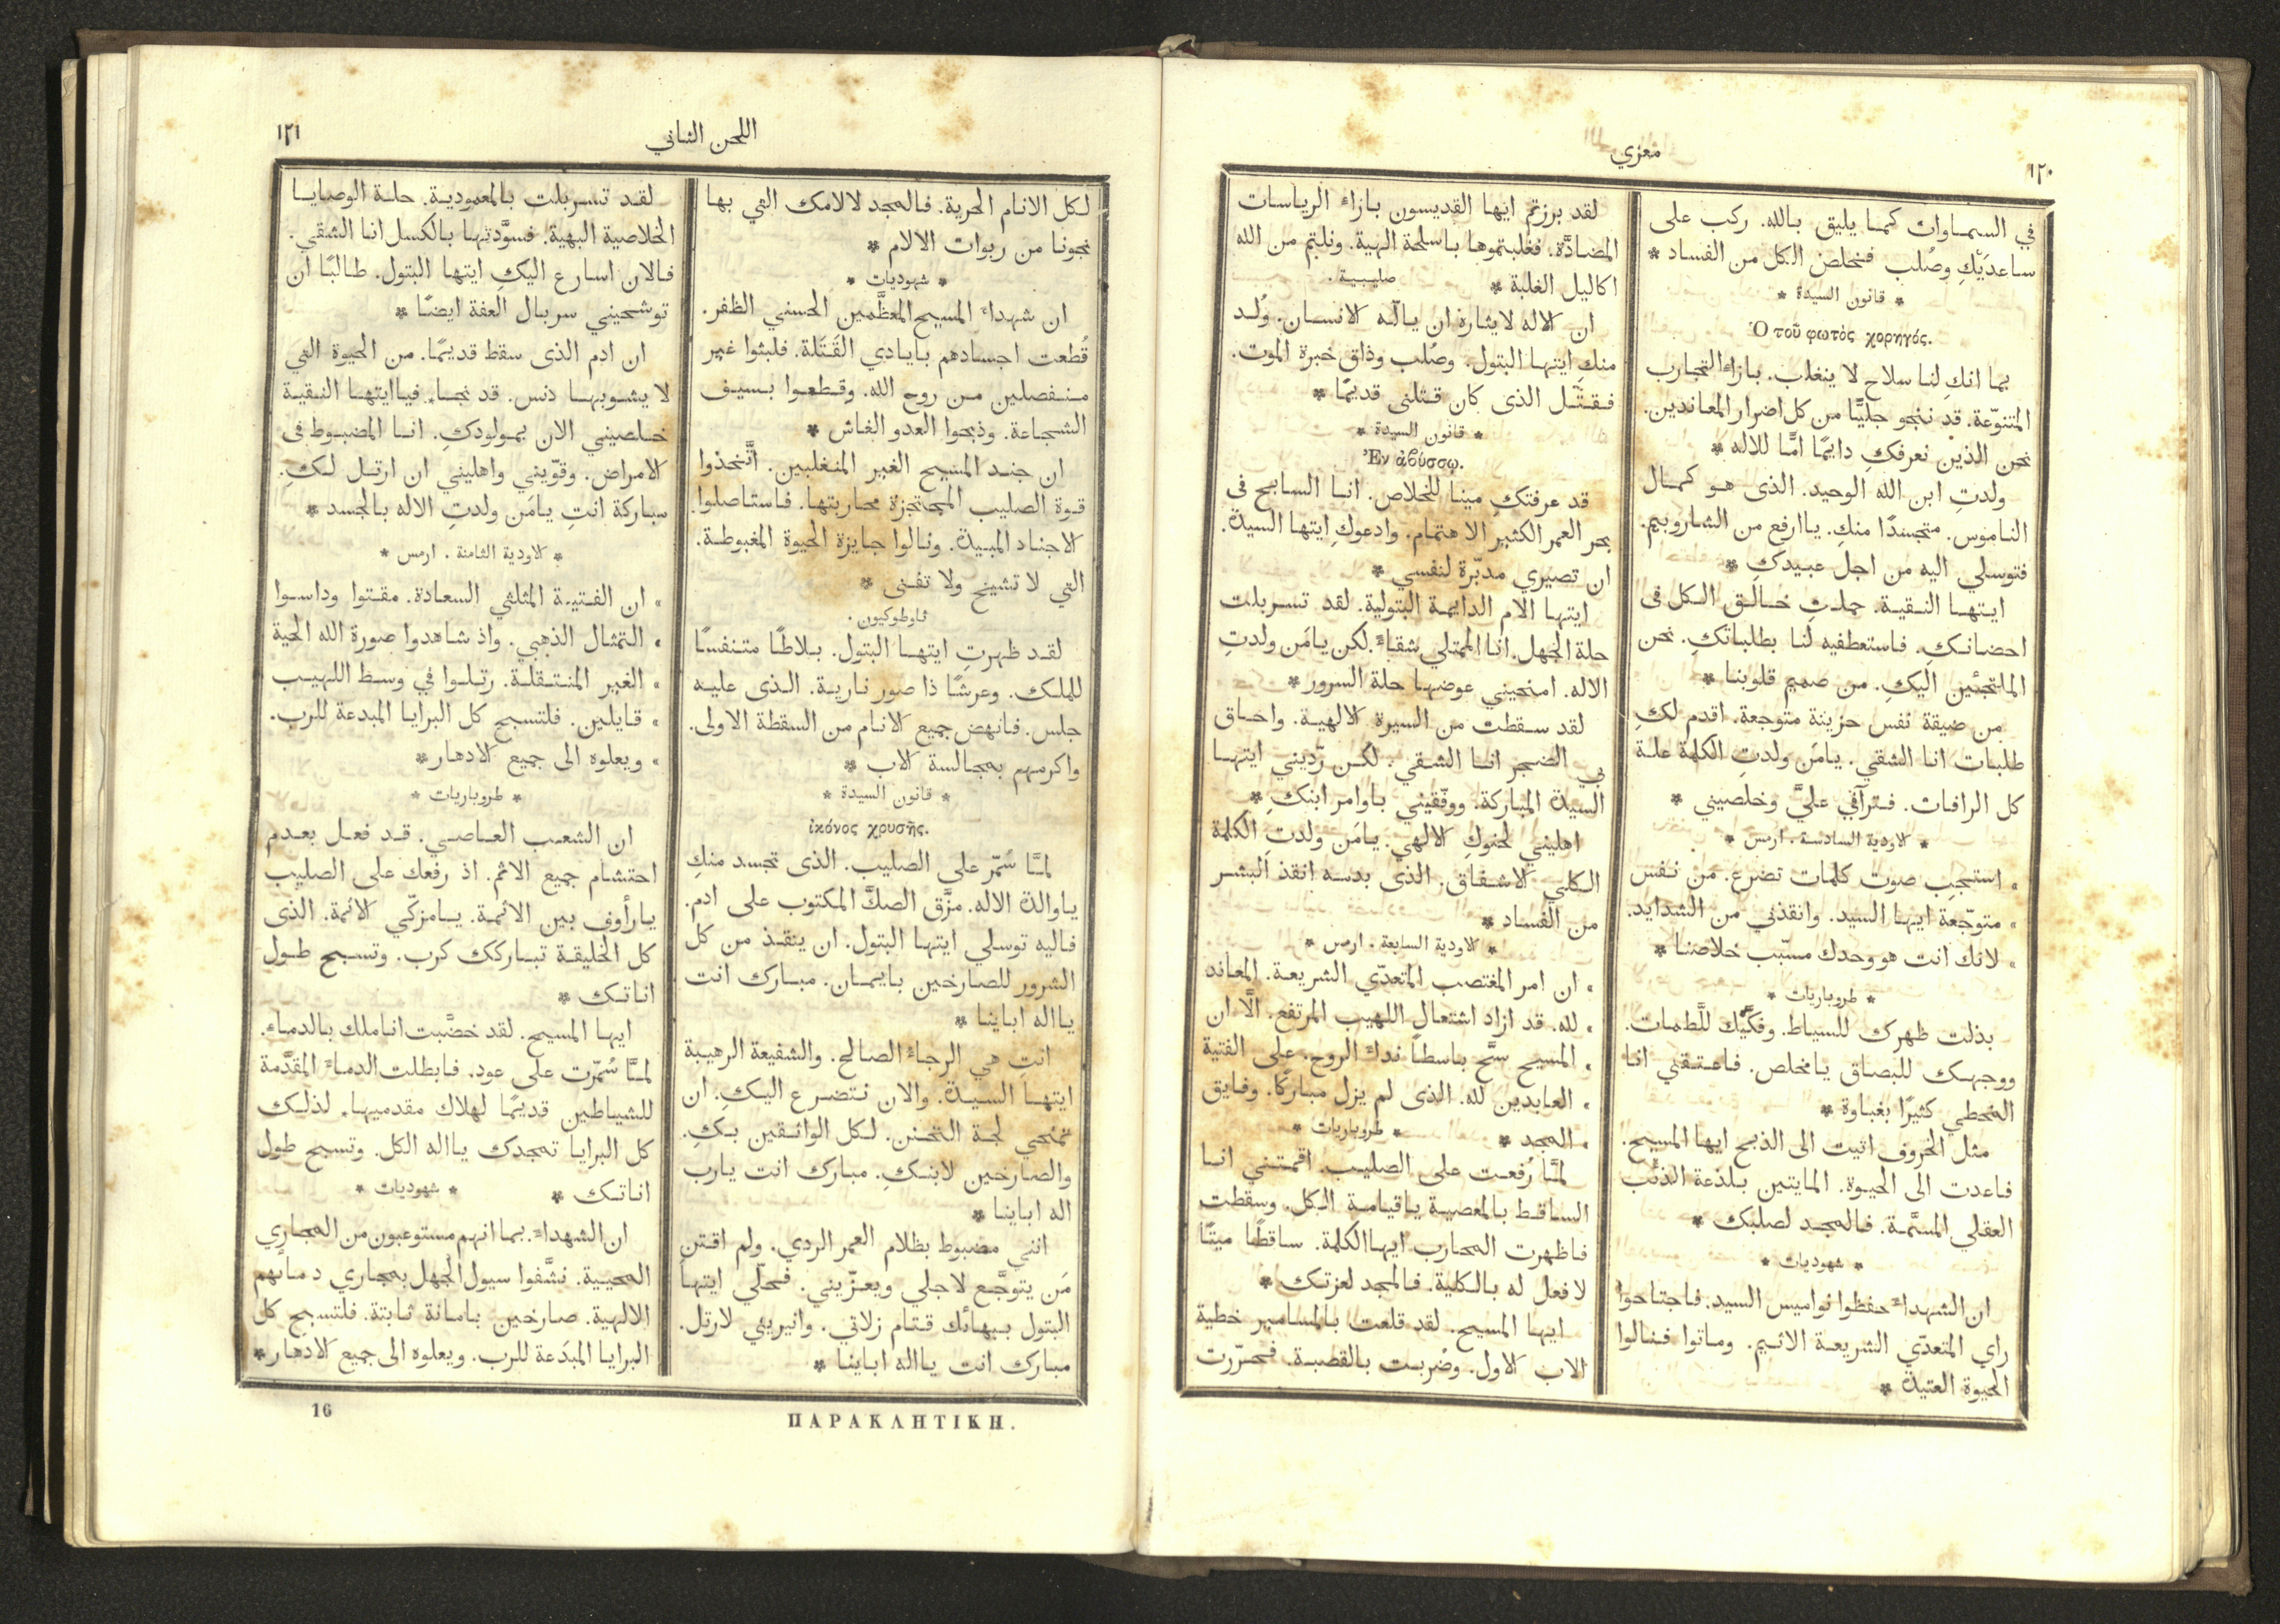 ١٢٠
معزي
في السماوات كما يليق بالله. ركب على
ساعدَيْكِ وصُلب فخلص الكل من الفساد *
* قانون السيدة *
Ὁ τοῦ φωτὸς χορηγός.
بما انكِ لنا سلاح لا ينغلب. بازاء التجارب
المتنوّعة. قد ننجو جليًّا من كل اضرار المعاندين.
نحن الذين نعرفكِ دايمًا امًّا للاله *
ولدتِ ابن الله الوحيد. الذى هو كمال
الناموس. متجسدًا منكِ. يا ارفع من الشاروبيم.
فتوسلي اليه من اجل عبيدكِ *
ايتها النقية. حملتِ خالق الكل فى
احضانكِ. فاستعطفيه لنا بطلباتكِ. نحن
الملتجئين اليكِ. من صميم قلوبنا *
من ضيقة نفس حزينة متوجعة. اقدم لكِ
طلبات انا الشقي. يامَن ولدتِ الكلمة علة
كل الرافات. فترآفي عليَّ وخلصيني *
* الاودية السادسة. ارمس *
» استجِب صوت كلمات تضرع. من نفس
» متوجّعة ايها السيد. وانقذني من الشدايد.
» لانك انت هو وحدك مسبّب خلاصنا *
* طروباريات *
بذلت ظهرك للسياط. وفكَّيْك للَّطمات.
ووجهك للبصاق يا مخلص. فاعتقني انا
المخطي كثيرًا بغباوة *
مثل الخروف اتيت الى الذبح ايها المسيح.
فاعدت الى الحيوة. المايتين بلذعة الذئب
العقلي المسمَّة. فالمجد لصلبك *
* شهوديات *
ان الشهداء حفظوا نواميس السيد. فاجتاحوا
راي المتعدّي الشريعة الاثيم. وماتوا فنالوا
الحيوة العتيدة *
لقد برزتم ايها القديسون بازاء الرياسات
المضادَّة. فغلبتموها باسلحة الهية. ونلتم من الله
اكاليل الغلبة * صليبية.
ان الاله لايثاره ان يالّه الانسان. وُلد
منكِ ايتها البتول. وصُلب وذاق خبرة الموت.
فقتّل الذى كان قتلنى قديمًا *
* قانون السيدة *
Ἐν ἀβύσσῳ.
قد عرفتكِ مينا للخلاص. انا السابح فى
بحر العمر الكثير الاهتمام. وادعوكِ ايتها السيدة.
ان تصيري مدبّرة لنفسي *
ايتها الام الدايمة البتولية. لقد تسربلت
حلة الجهل. انا الممتلي شقاءً. لكن يامَن ولدتِ
الاله. امنحيني عوضها حلة السرور *
لقد سقطت من السيرة الالهية. واحاق
بي الضجر انا الشقي. لكن رّديني ايتها
السيدة المباركة. ووفّقيني باوامر ابنكِ *
اهليني لحنوكِ الالهي. يامَن ولدتِ الكلمة
الكلي الاشفاق. الذى بدمه انقذ البشر
من الفساد *
* الاودية السابعة. ارمس *
» ان امر المغتصب المتعدّي الشريعة. المعاند
» لله. قد ازاد اشتعال اللهيب المرتفع. الَّا ان
» المسيح سحَّ باسطًا نداء الروح. على الفتية
» العابدين لله. الذى لم يزل مباركًا. وفايق
» المجد * * طروباريات *
لمَّا رُفعت على الصليب. اقمتني انا
الساقط بالمعصية ياقيامة الكل. وسقطت
فاظهرت المحارب ايها الكلمة. ساقطًا ميتًا
لا فعل له بالكلية. فالمجد لعزتك *
ايها المسيح. لقد قلعت بالمسامير خطية
الاب الاول. وضُربت بالقصبة. فحرّرت
اللحن الثاني
١٢١
لكل الانام الحرية. فالمجد لالامك التي بها
نجونا من ربوات الالام *
* شهوديات *
ان شهداء المسيح المعظَّمين الحسني الظفر.
قُطعت اجسادهم بايادي القَتَلة. فلبثوا غير
منفصلين من روح الله. وقطعوا بسيف
الشجاعة. وذبحوا العدو الغاش *
ان جند المسيح الغير المنغلبين. اتَّخذوا
قوة الصليب المحتجزة محاربتها. فاستاصلوا
الاجناد المبيدة. ونالوا جايزة الحيوة المغبوطة.
التي لا تشيخ ولا تفنى *
ثاوطوكيون.
لقد ظهرتِ ايتها البتول. بلاطًا متنفسًا
للملك. وعرشًا ذا صور نارية. الذى عليه
جلس. فانهض جميع الانام من السقطة الاولى.
واكرمهم بمجالسة الاب *
* قانون السيدة *
ἰκόνος χρυσῆς.
لمَّا سُمّر على الصليب. الذى تجسد منكِ
ياوالدة الاله. مزَّق الصكَّ المكتوب على ادم.
فاليه توسلي ايتها البتول. ان ينقذ من كل
الشرور للصارخين بايمان. مبارك انت
يا اله اباينا *
انت هي الرجاء الصالح. والشفيعة الرهيبة
ايتها السيدة. والان نتضرع اليكِ. ان
تمنحي لجة التحنن. لكل الواثقين بكِ.
والصارخين لابنكِ. مبارك انت يارب
اله اباينا *
انني مضبوط بظلام العمر الردي. ولم اقتنِ
مَن يتوجَّع لاجلي ويعزّيني. فحلّي ايتها
البتول ببهائك قتام زلاتي. وانيريني لارتل.
مبارك انت يا اله اباينا *
لقد تسربلت بالمعمودية. حلة الوصايا
الخلاصية البهية. فسوَّدتها بالكسل انا الشقي.
فالان اسارع اليكِ ايتها البتول. طالبًا ان
توشحيني سربال العفة ايضًا *
ان ادم الذى سقط قديمًا. من الحيوة التي
لا يشوبها دنس. قد نجا. فيا ايتها النقية
خلصيني الان بمولودكِ. انا المضبوط فى
الامراض. وقوّيني واهليني ان ارتل لكِ.
مباركة انتِ يامَن ولدتِ الاله بالجسد *
* الاودية الثامنة. ارمس *
» ان الفتية المثلثي السعادة. مقتوا وداسوا
» التمثال الذهبي. واذ شاهدوا صورة الله الحية
» الغير المنتقلة. رتلوا في وسط اللهيب
» قايلين. فلتسبح كل البرايا المبدعة للرب.
» ويعلوه الى جميع الادهار *
* طروباريات *
ان الشعب العاصي. قد فعل بعدم
احتشام جميع الاثم. اذ رفعك على الصليب
يا رأوف بين الاثمة. يا مزكّي الائمة. الذى
كل الخليقة تباركك كرب. وتسبح طول
اناتك *
ايها المسيح. لقد خضَّبت اناملك بالدماء.
لمَّا سُمّرت على عود. فابطلت الدماء المقدَّمة
للشياطين قديمًا لهلاك مقدميها. لذلك
كل البرايا تمجدك يا اله الكل. وتسبح طول
اناتك * * شهوديات *
ان الشهداء. بما انهم مستوعبون من المجاري
المحيية. نشَّفوا سيول الجهل بمجاري دمائهم
الالهية. صارخين بامانة ثابتة. فلتسبح كل
البرايا المبدَعة للرب. ويعلوه الى جميع الادهار *
ΠΑΡΑΚΛΗΤΙΚΗ.
16